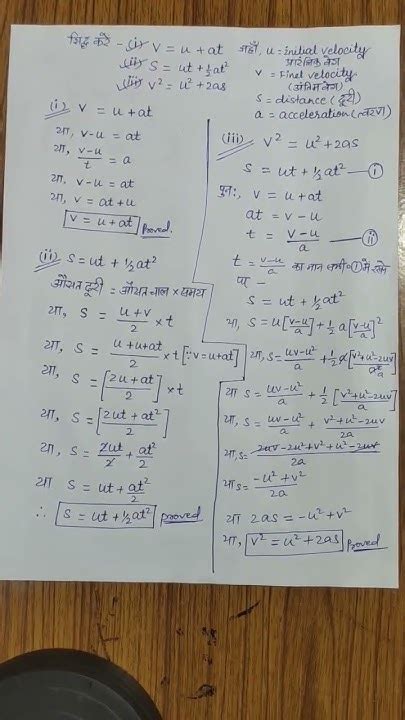 सिद्ध करें - (i) v = u + at
(ii) S = ut + ½at²
(iii) v² = u² + 2as
जहाँ, u = initial velocity
प्रारंभिक वेग
v = Finel velocity
(अंतिम वेग)
s = distance (दूरी)
a = acceleration (त्वरण)
(i) v = u + at
या, v-u = at
या, v-u/t = a
या, v-u = at
या, v = at + u
v = u + at Proved.
(ii) S = ut + ½at²
औसत दूरी = औसत चाल × समय
या, S = u+v/2 × t
या, S = u+u+at/2 × t [∵ v = u+at]
या, S = [2u+at/2] × t
या, S = [2ut+at²/2]
या, S = 2ut/2 + at²/2
या S = ut + at²/2
∴ S = ut + ½at² Proved
(iii) v² = u² + 2as
S = ut + ½at² — (i)
पुनः, v = u + at
at = v - u
t = v-u/a — (ii)
t = v-u/a का मान समी० (i) में रखने
पर -
S = ut + ½at²
या, S = u[v-u/a] + ½ a[v-u/a]²
या, S = uv-u²/a + ½ a[v²+u²-2uv/a²]
या S = uv-u²/a + ½ [v²+u²-2uv/a]
या S = uv-u²/a + v²+u²-2uv/2a
या, S = 2uv-2u²+v²+u²-2uv/2a
या S = -u²+v²/2a
या 2as = -u² + v²
या, v² = u² + 2as Proved